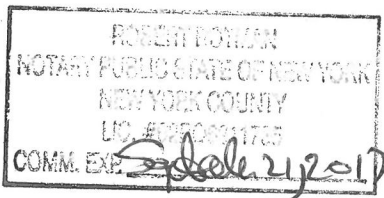 ROBERT ROTMAN
NOTARY PUBLIC STATE OF NEW YORK
NEW YORK COUNTY
LIC.
COMM. EXP. September 21, 2017